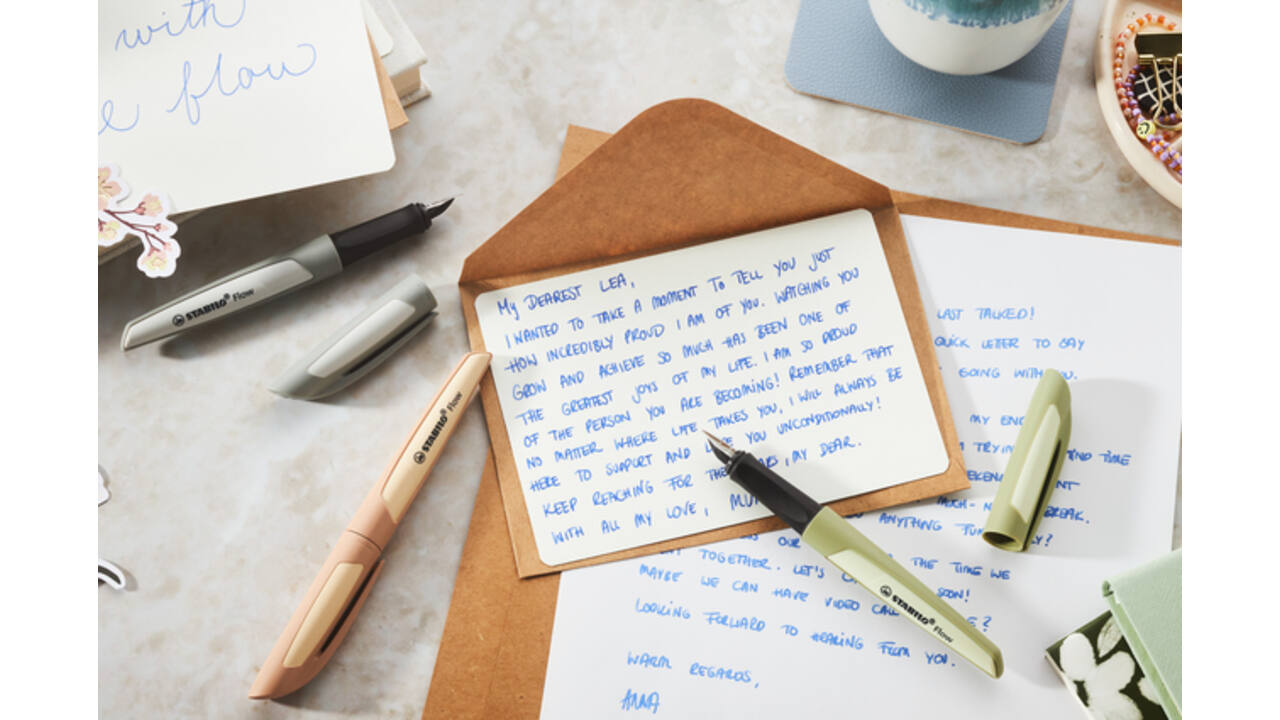 with
flow
STABILO® Flow
STABILO® Flow
My DEAREST LEA,
I WANTED TO TAKE A MOMENT TO TELL YOU JUST
HOW INCREDIBLY PROUD I AM OF YOU. WATCHING YOU
GROW AND ACHIEVE SO MUCH HAS BEEN ONE OF
THE GREATEST JOYS OF MY LIFE. I AM SO PROUD
OF THE PERSON YOU ARE BECOMING! REMEMBER THAT
NO MATTER WHERE LIFE TAKES YOU, I WILL ALWAYS BE
HERE TO SUPPORT AND YOU UNCONDITIONALLY!
KEEP REACHING FOR , MY DEAR.
WITH ALL MY LOVE,
LAST TALKED!
QUICK LETTER TO SAY
GOING WITH YOU.
MY
TIME
BREAK.
OUR ANYTHING
TOGETHER. LET'S THE TIME WE
MAYBE WE CAN HAVE VIDEO SOON!
LOOKING FORWARD TO HEARING FROM YOU.
WARM REGARDS,
ANNA
STABILO® Flow